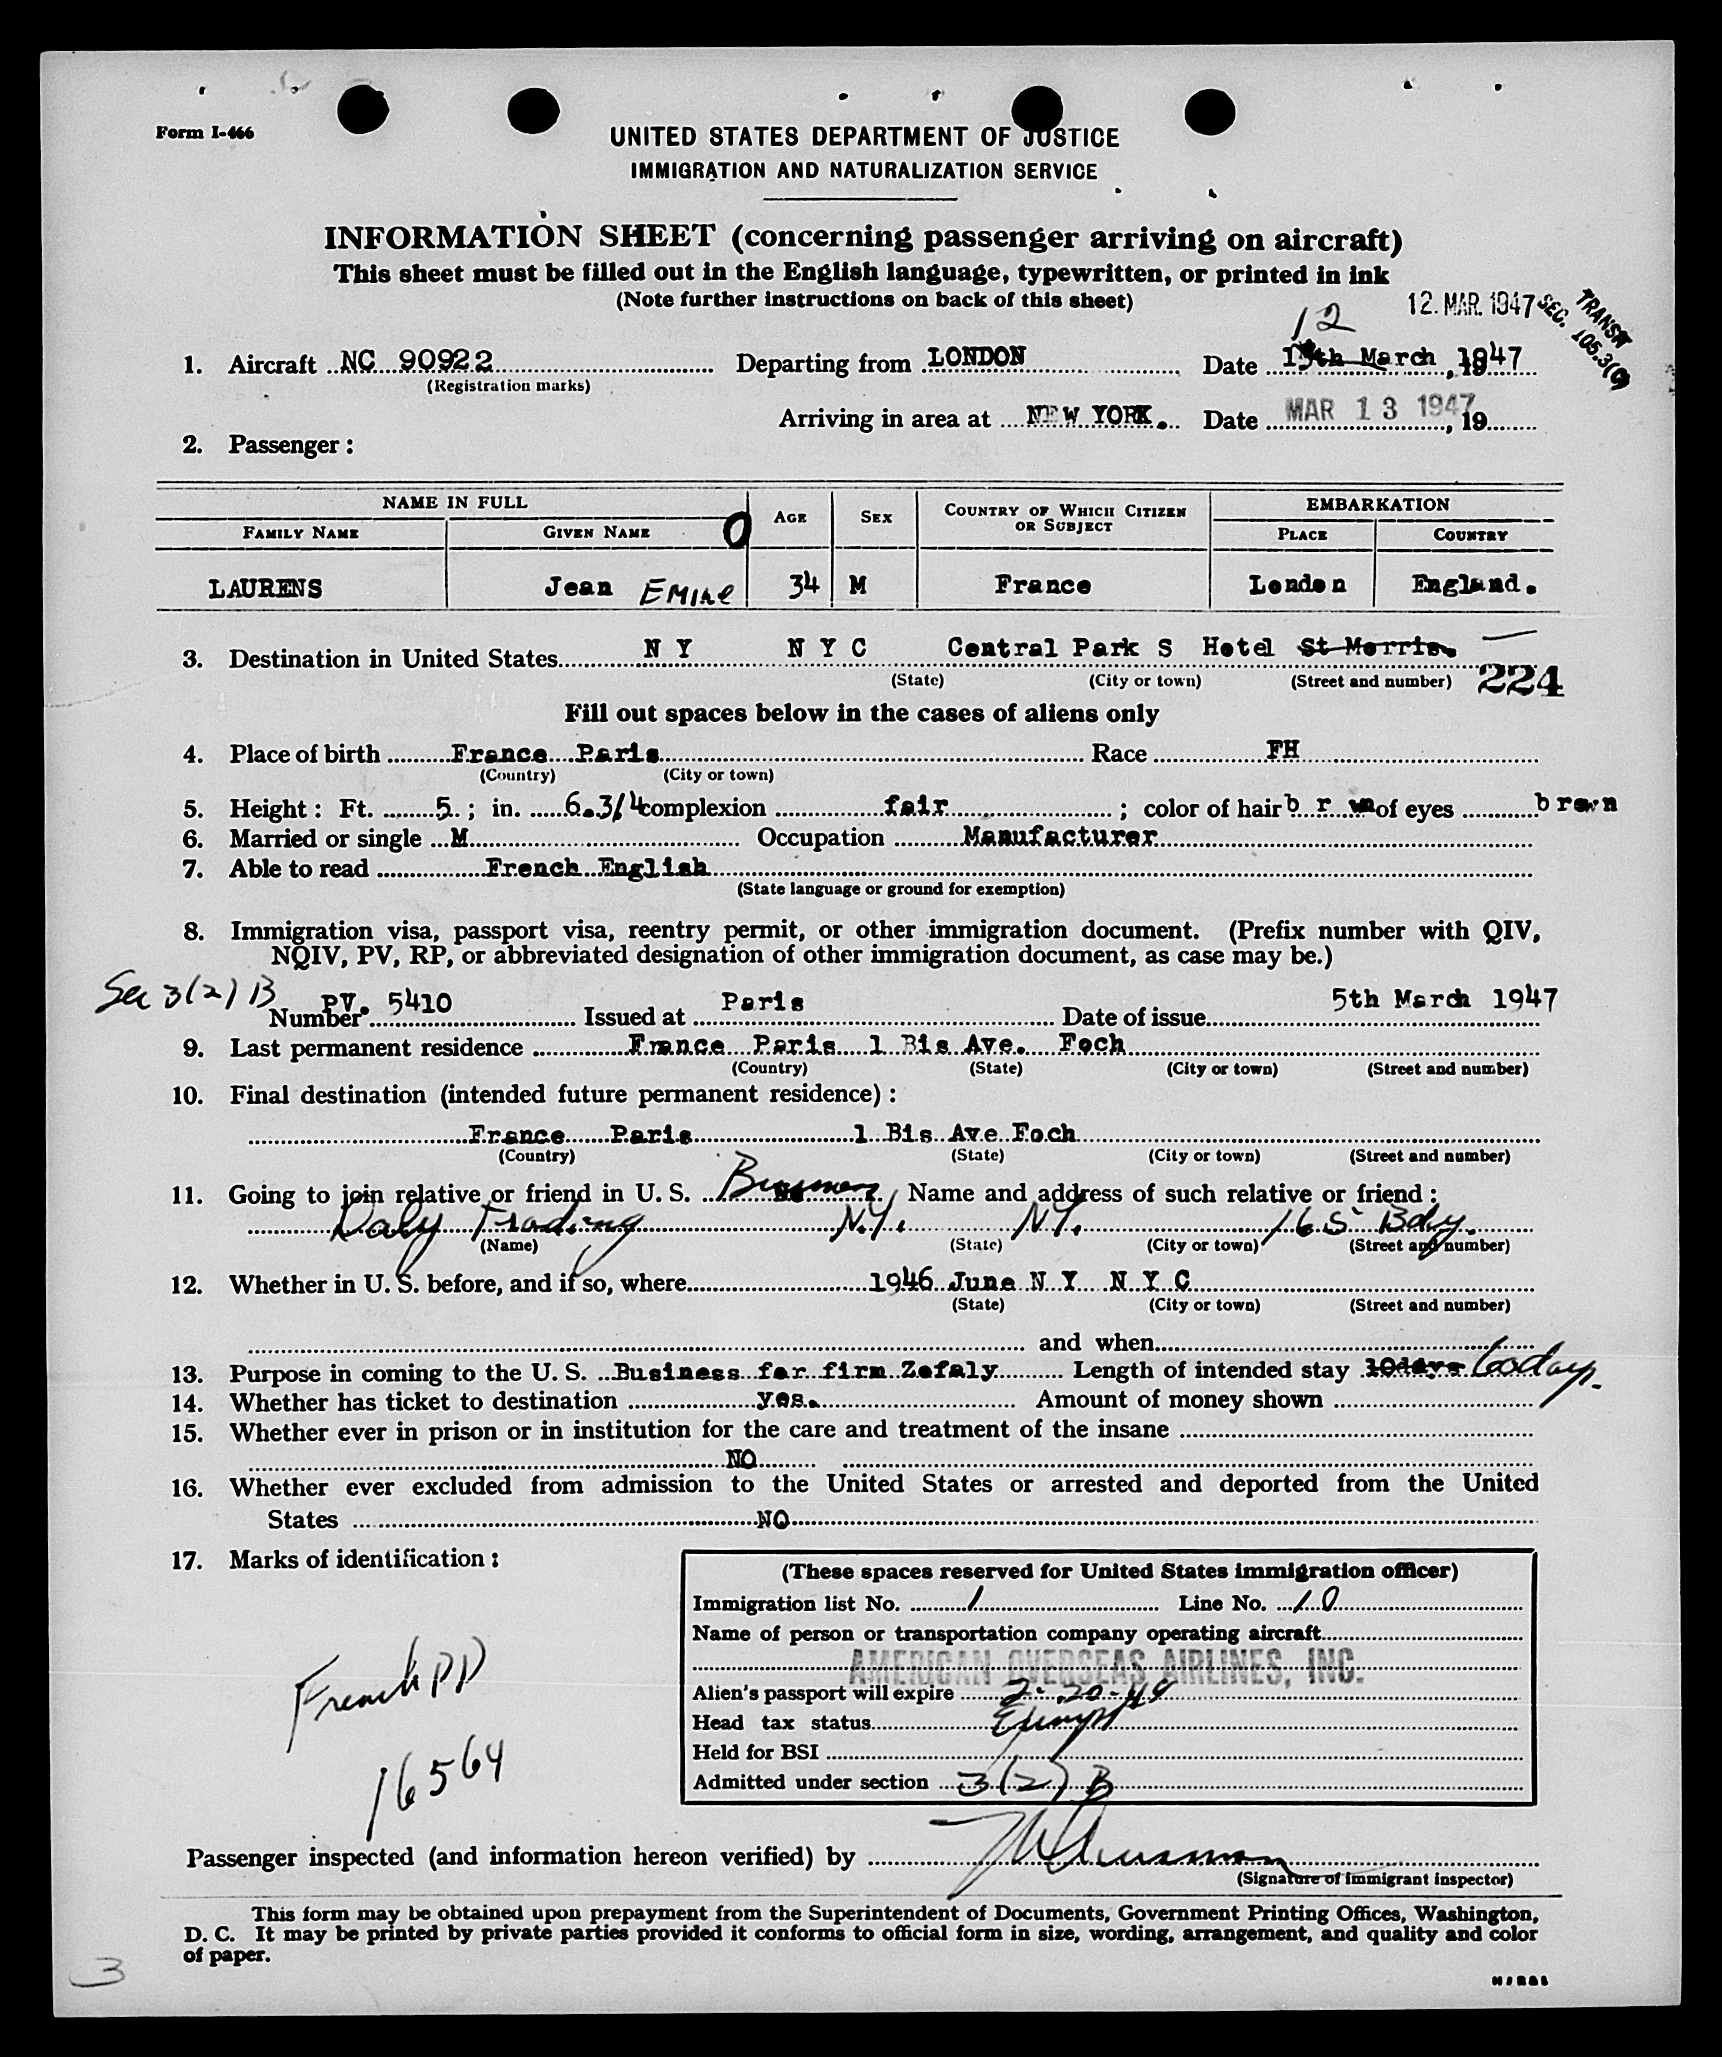 Form I-466
UNITED STATES DEPARTMENT OF JUSTICE
IMMIGRATION AND NATURALIZATION SERVICE
INFORMATION SHEET (concerning passenger arriving on aircraft)
This sheet must be filled out in the English language, typewritten, or printed in ink
(Note further instructions on back of this sheet)
12. MAR. 1947
TRANSIT
SEC. 105.3(C)
12
1. Aircraft NC 90922 Departing from LONDON Date 13th March 1947, 19
(Registration marks)
Arriving in area at NEW YORK. Date MAR 13 1947, 19
2. Passenger:
NAME IN FULL AGE SEX COUNTRY OF WHICH CITIZEN OR SUBJECT EMBARKATION
FAMILY NAME GIVEN NAME O PLACE COUNTRY
LAURENS Jean EMILE 34 M France London England.
3. Destination in United States N Y N Y C Central Park S Hotel St Morris.
(State) (City or town) (Street and number) 224
Fill out spaces below in the cases of aliens only
4. Place of birth France Paris Race FH
(Country) (City or town)
5. Height: Ft. 5; in. 6.3/4 complexion fair; color of hair b r wn of eyes brown
6. Married or single M Occupation Manufacturer
7. Able to read French English
(State language or ground for exemption)
8. Immigration visa, passport visa, reentry permit, or other immigration document. (Prefix number with QIV,
NQIV, PV, RP, or abbreviated designation of other immigration document, as case may be.)
Sec 3(2) B
Number PV. 5410 Issued at Paris Date of issue 5th March 1947
9. Last permanent residence France Paris 1 Bis Ave. Foch
(Country) (State) (City or town) (Street and number)
10. Final destination (intended future permanent residence):
France Paris 1 Bis Ave Foch
(Country) (State) (City or town) (Street and number)
11. Going to join relative or friend in U. S. Business Name and address of such relative or friend:
Daly Trading N.Y. N.Y. 165 Bdy.
(Name) (State) (City or town) (Street and number)
12. Whether in U. S. before, and if so, where 1946 June N Y N Y C
(State) (City or town) (Street and number)
and when
13. Purpose in coming to the U. S. Business for firm Zefaly Length of intended stay 10days 60 days.
14. Whether has ticket to destination yes. Amount of money shown
15. Whether ever in prison or in institution for the care and treatment of the insane
NO
16. Whether ever excluded from admission to the United States or arrested and deported from the United
States NO
17. Marks of identification:
French PP
16564
(These spaces reserved for United States immigration officer)
Immigration list No. 1 Line No. 10
Name of person or transportation company operating aircraft
AMERICAN OVERSEAS AIRLINES, INC.
Alien's passport will expire 2-20-49
Head tax status Exempt
Held for BSI
Admitted under section 3(2) B
Passenger inspected (and information hereon verified) by
(Signature of immigrant inspector)
This form may be obtained upon prepayment from the Superintendent of Documents, Government Printing Offices, Washington,
D. C. It may be printed by private parties provided it conforms to official form in size, wording, arrangement, and quality and color
of paper.
3